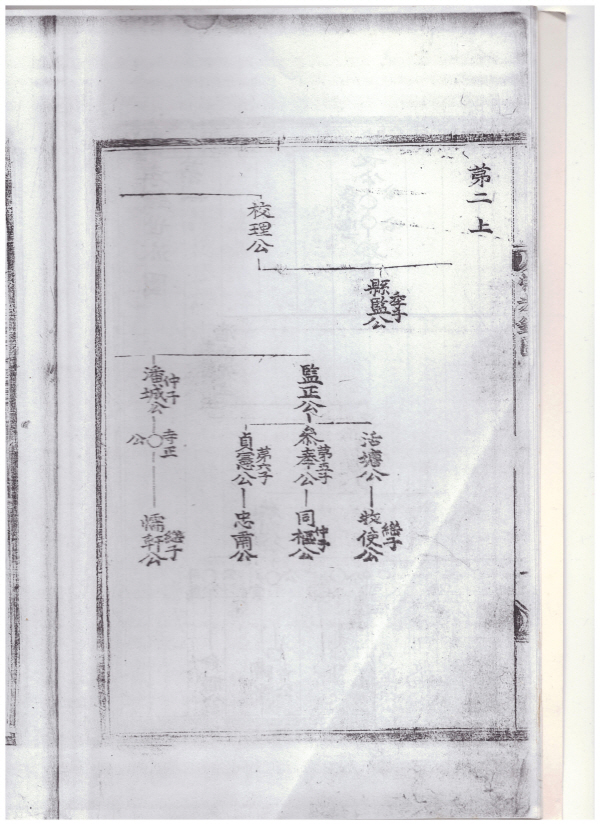 第二 上
校理公
縣監公
季子
監正公
潘城公
仲子
活塘公
參奉公
第五子
貞憲公
第六子
寺正
公
牧使公
繼子
同樞公
仲子
忠肅公
懦軒公
繼子